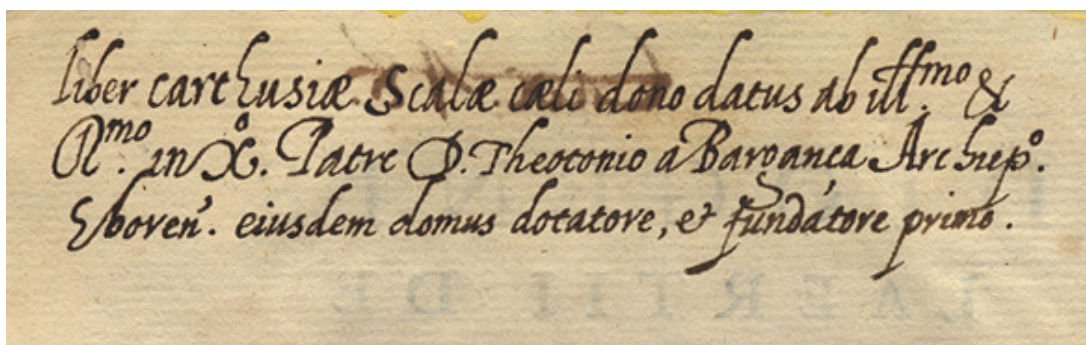 liber carthusiæ Scalæ cæli dono datus ab ill.mo &
R.mo in X.o Patre D. Theotonio a Bargança Archiep.o
Eboren̄. eiusdem domus dotatore, et fundatore primo.
LAERTII DE